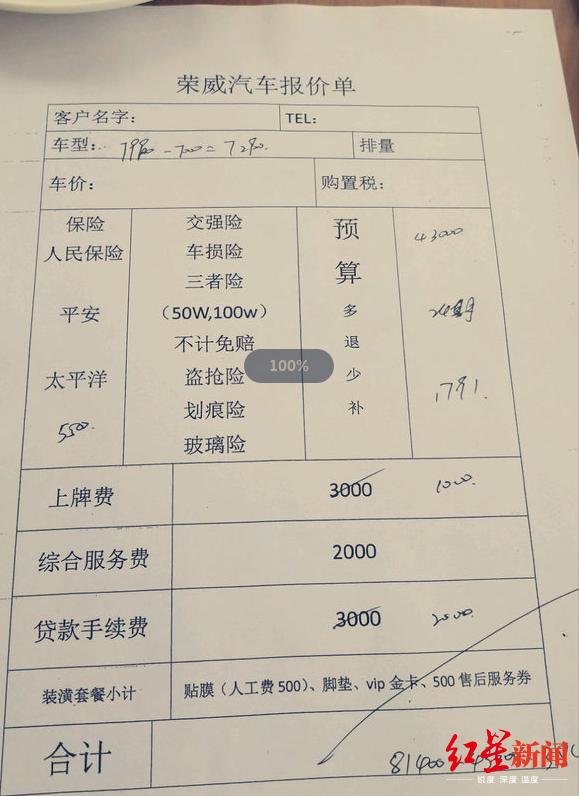 荣威汽车报价单
客户名字: TEL:
车型: 排量
车价: 购置税:
保险 交强险 预
人民保险 车损险 43000
三者险 算
平安 （50W,100w） 多
不计免赔 退
100%
太平洋 盗抢险 少
划痕险 补 1791.
5500. 玻璃险
上牌费 3000 1000.
综合服务费 2000
贷款手续费 3000 2000.
装潢套餐小计 贴膜（人工费500）、脚垫、vip金卡、500售后服务券
合计
81400
红星新闻
锐度 深度 温度